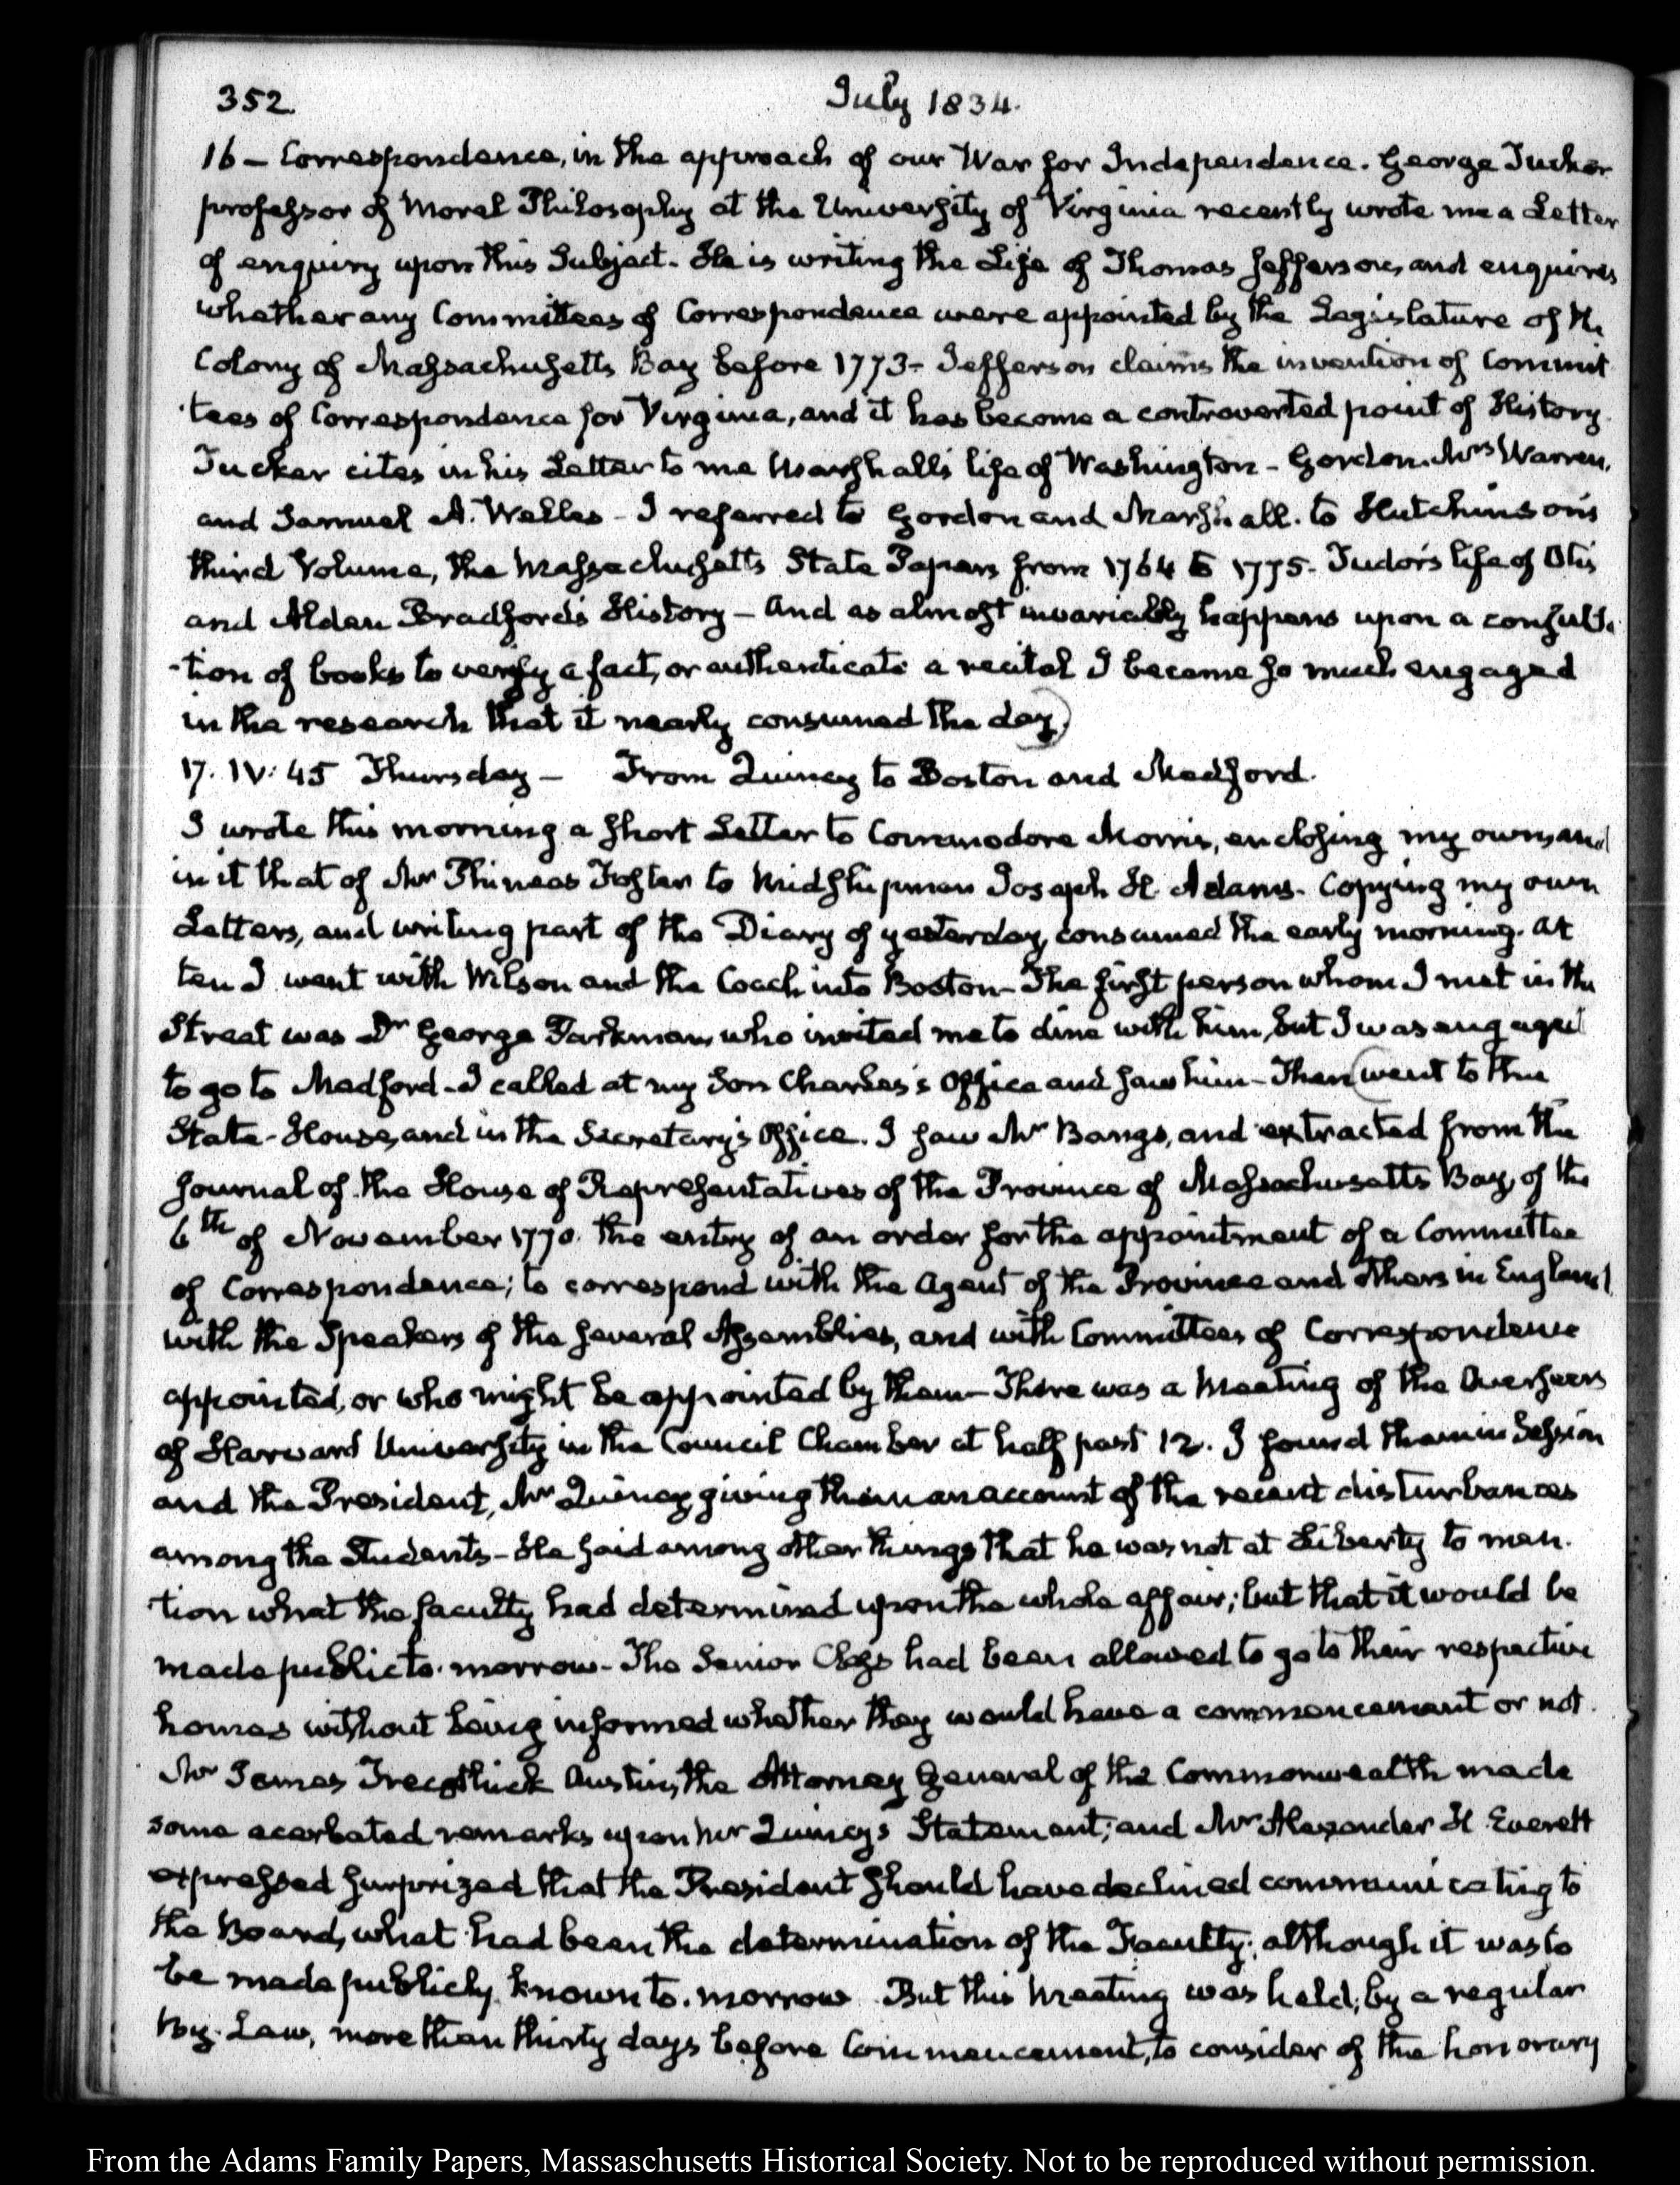 352.
July 1834.
16 – Correspondence, in the approach of our War for Independence. George Tucker
professor of Moral Philosophy at the University of Virginia recently wrote me a Letter
of enquiry upon this Subject. He is writing the Life of Thomas Jefferson, and enquires
whether any Committees of Correspondence were appointed by the Legislature of the
Colony of Massachusetts Bay before 1773 – Jefferson claims the invention of Commit
tees of Correspondence for Virginia, and it has become a controverted point of History.
Tucker cites in his Letter to me Marshall's life of Washington – Gordon. Mrs Warren,
and Samuel A. Welles – I referred to Gordon and Marshall. to Hutchinson's
third Volume, the Massachusetts State Papers from 1764 to 1775. Tudor's life of Otis
and Alden Bradford's History – And as almost invariably happens upon a consulta
-tion of books to verify a fact, or authenticate a recital I became so much engaged
in the research that it nearly consumed the day.)
17. IV: 45 Thursday – From Quincy to Boston and Medford.
I wrote this morning a short Letter to Commodore Morris, enclosing my own, and
in it that of Mr Phineas Foster to Midshipman Joseph H. Adams. Copying my own
Letters, and writing part of the Diary of yesterday, consumed the early morning. At
ten I went with Wilson and the Coach into Boston – The first person whom I met in the
Street was Dr George Parkman, who invited me to dine with him, but I was engaged
to go to Medford – I called at my Son Charles's Office and saw him – Then (went to the
State-House, and in the Secretary's Office. I saw Mr Bangs, and extracted from the
Journal of the House of Representatives of the Province of Massachusetts Bay, of the
6th of November 1770. the entry of an order for the appointment of a Committee
of Correspondence; to correspond with the Agent of the Province and others in England
with the Speakers of the several Assemblies, and with Committees of Correspondence
appointed, or who might be appointed by them – There was a Meeting of the Overseers
of Harvard University in the Council Chamber at half past 12. I found them in Session
and the President, Mr Quincy giving them an account of the recent disturbances
among the Students – He said among other things that he was not at Liberty to men-
tion what the faculty had determined upon the whole affair; but that it would be
made public to-morrow – The Senior Class had been allowed to go to their respective
homes without being informed whether they would have a commencement or not.
Mr James Trecothick Austin, the Attorney General of the Commonwealth made
some acerbated remarks upon Mr Quincy's Statement; and Mr Alexander H. Everett
expressed surprized that the President should have declined communicating to
the Board, what had been the determination of the Faculty; although it was to
be made publicly known to-morrow. But this Meeting was held, by a regular
by-Law, more than thirty days before Commencement, to consider of the honorary
From the Adams Family Papers, Massaschusetts Historical Society. Not to be reproduced without permission.